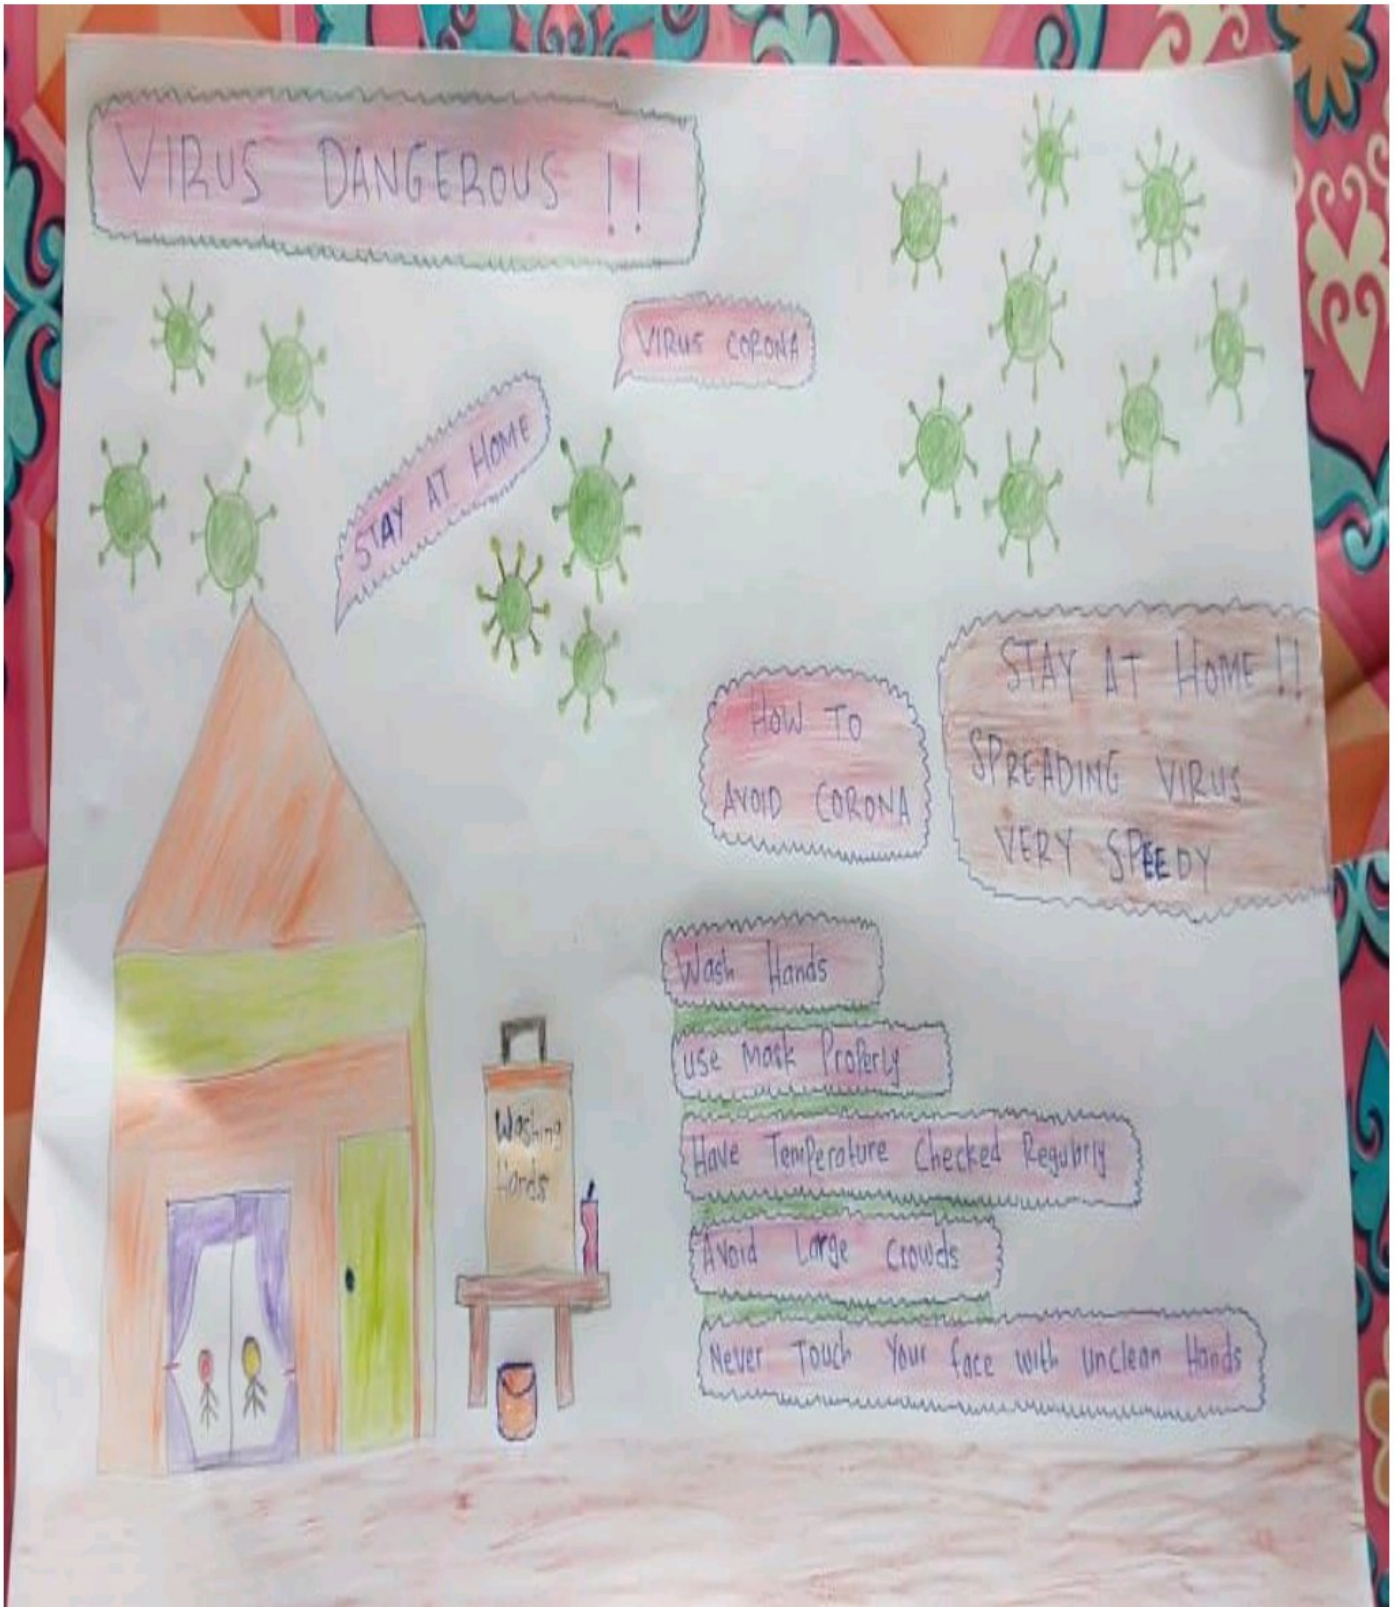 VIRUS DANGEROUS !!
VIRUS CORONA
STAY AT HOME
STAY AT HOME !!
SPREADING VIRUS
VERY SPEEDY
HOW TO
AVOID CORONA
Wash Hands
use Mask Properly
Have Temperature Checked Regularly
Avoid Large Crowds
Never Touch Your face with unclean Hands
Washing
Hands